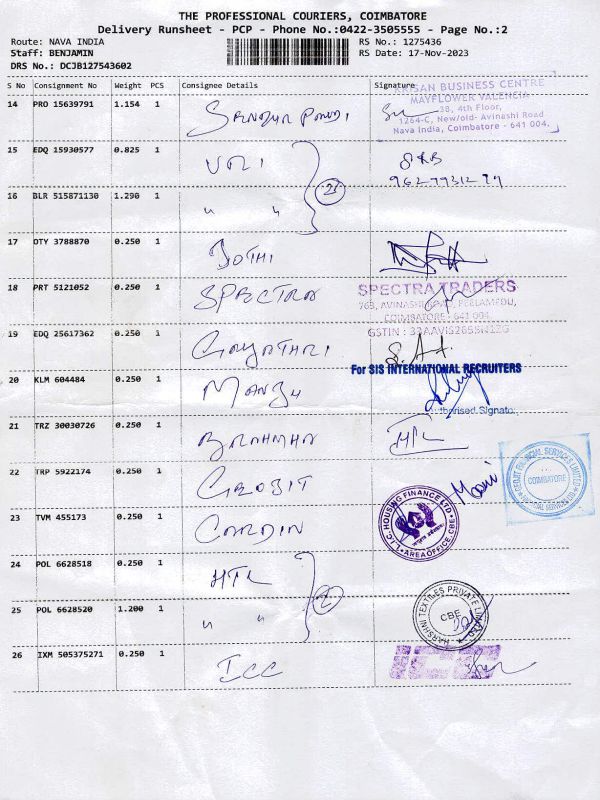 THE PROFESSIONAL COURIERS, COIMBATORE
Delivery Runsheet - PCP - Phone No.:0422-3505555 - Page No.:2
Route: NAVA INDIA
Staff: BENJAMIN
DRS No.: DCJB127543602
RS No.: 1275436
RS Date: 17-Nov-2023
S No Consignment No Weight PCS Consignee Details Signature
14 PRO 15639791 1.154 1
BUSINESS CENTRE
MAYFLOWER VALENCIA
38, 4th Floor,
1264-C, New/old- Avinashi Road
Nava India, Coimbatore - 641 004.
15 EDQ 15930577 0.825 1
16 BLR 515871130 1.290 1 " "
17 DTY 3788870 0.250 1 JOTHI
18 PRT 5121052 0.250 1 SPECTRA
SPECTRA TRADERS
COIMBATORE - 641 004
19 EDQ 25617362 0.250 1 GAYATHARI
20 KLM 604484 0.250 1
For SIS INTERNATIONAL RECRUITERS
21 TRZ 30030726 0.250 1 BRAHMAN
22 TRP 5922174 0.250 1 CREDIT
COIMBATORE
23 TVM 455173 0.250 1
L.I.C. HOUSING FINANCE LTD.
AREA OFFICE, CBE
24 POL 6628518 0.250 1 HTL
25 POL 6628520 1.200 1 " "
HARSHNI TEXTILES PRIVATE LIMITED
CBE
26 IXM 505375271 0.250 1 ICC